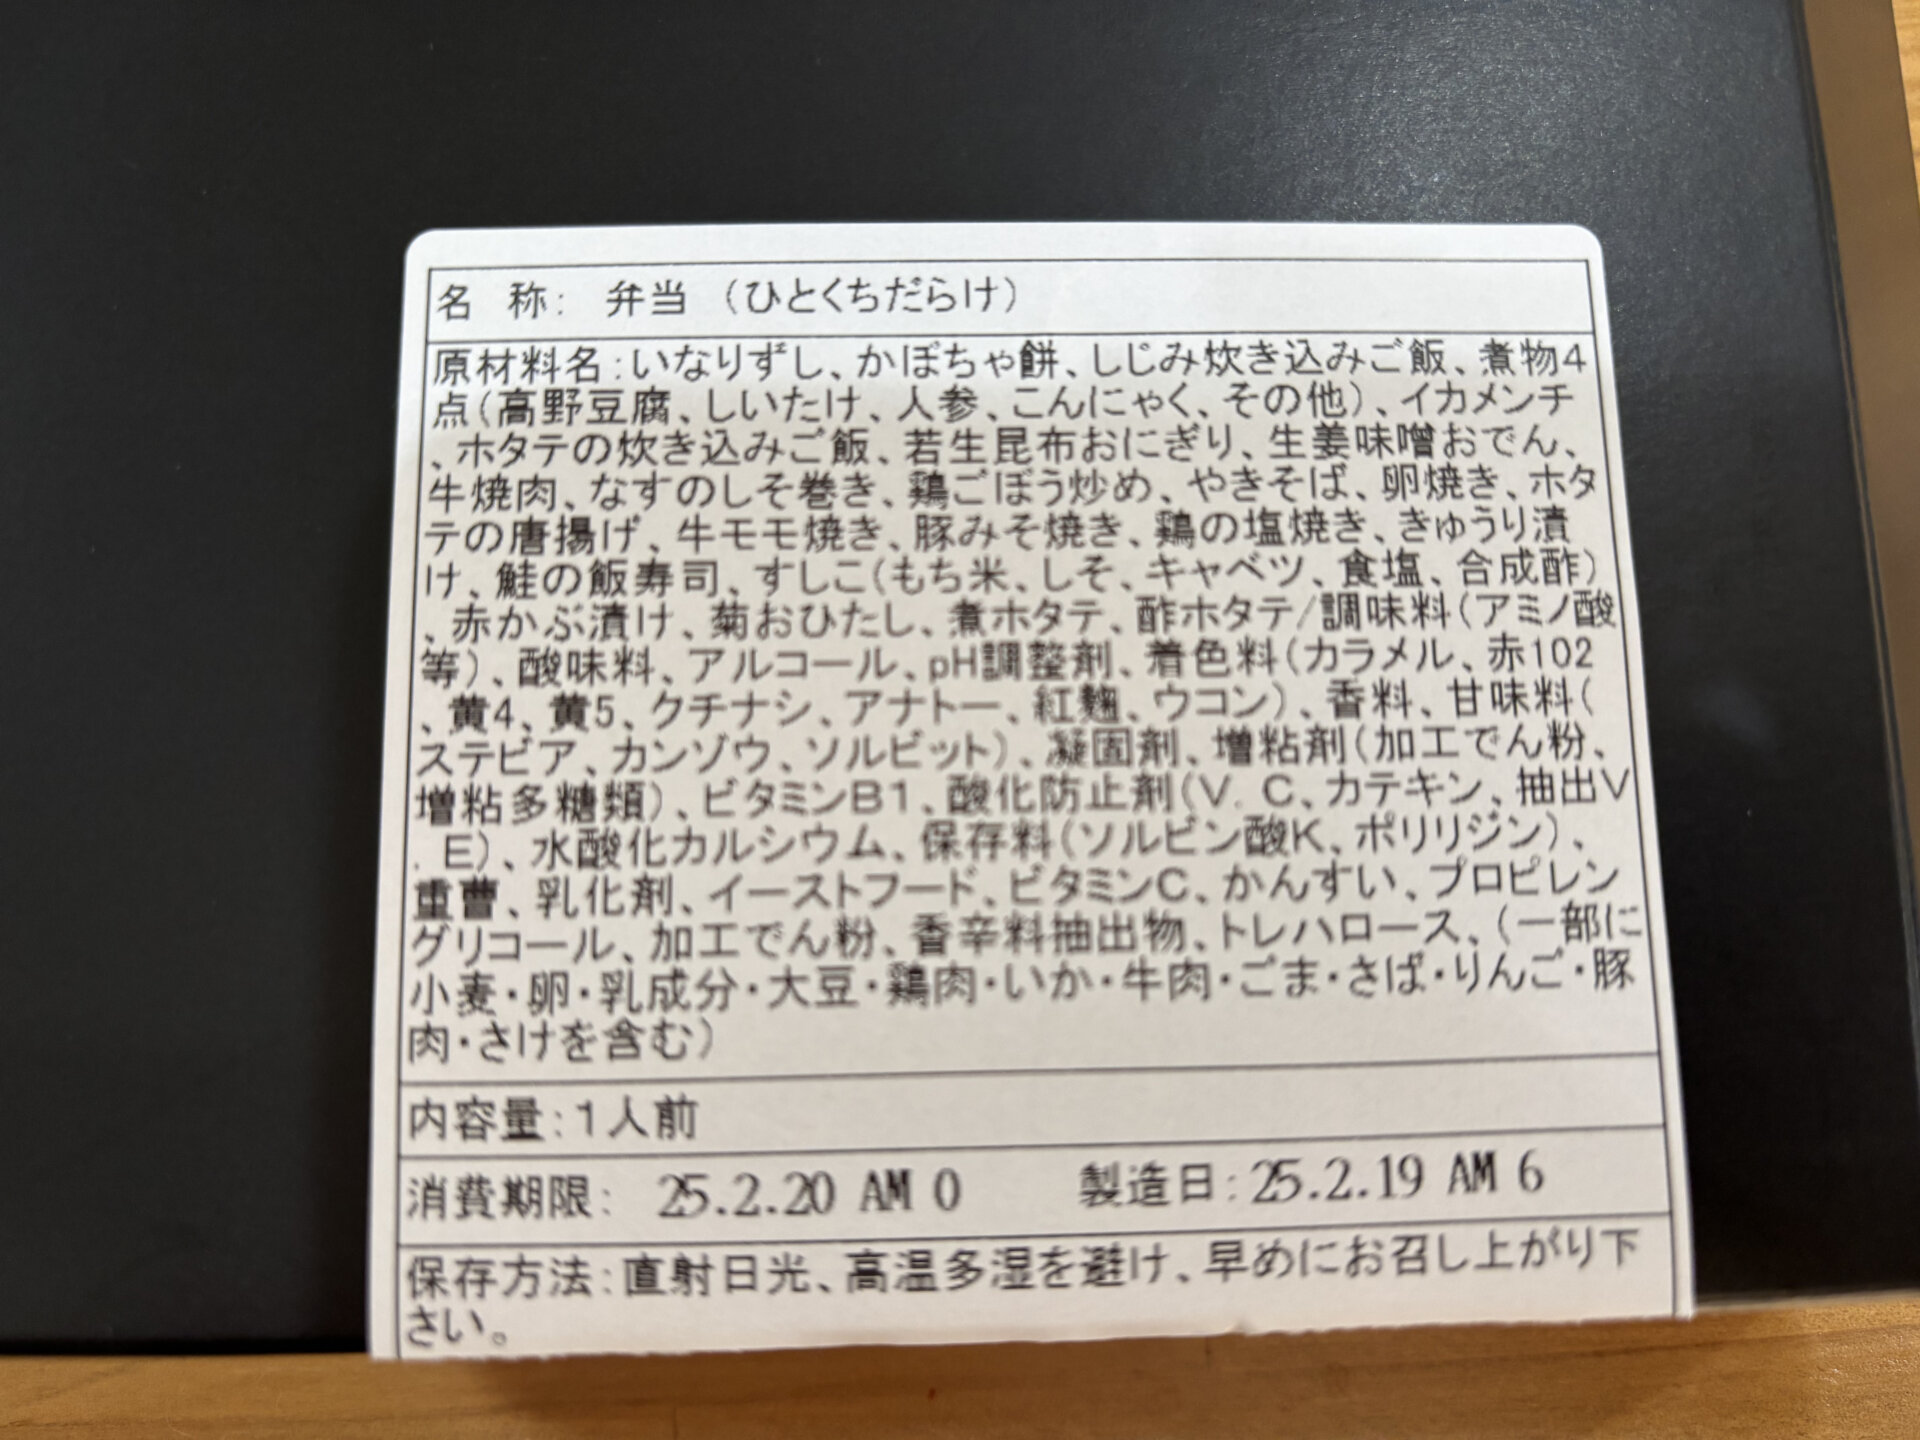 名　称:　弁当　(ひとくちだらけ)
原材料名:いなりずし、かぼちゃ餅、しじみ炊き込みご飯、煮物4
点(高野豆腐、しいたけ、人参、こんにゃく、その他)、イカメンチ
、ホタテの炊き込みご飯、若生昆布おにぎり、生姜味噌おでん、
牛焼肉、なすのしそ巻き、鶏ごぼう炒め、やきそば、卵焼き、ホタ
テの唐揚げ、牛モモ焼き、豚みそ焼き、鶏の塩焼き、きゅうり漬
け、鮭の飯寿司、すしこ(もち米、しそ、キャベツ、食塩、合成酢)
、赤かぶ漬け、菊おひたし、煮ホタテ、酢ホタテ/調味料(アミノ酸
等)、酸味料、アルコール、pH調整剤、着色料(カラメル、赤102
、黄4、黄5、クチナシ、アナトー、紅麹、ウコン)、香料、甘味料(
ステビア、カンゾウ、ソルビット)、凝固剤、増粘剤(加工でん粉、
増粘多糖類)、ビタミンB1、酸化防止剤(V.C、カテキン、抽出V
.E)、水酸化カルシウム、保存料(ソルビン酸K、ポリリジン)、
重曹、乳化剤、イーストフード、ビタミンC、かんすい、プロピレン
グリコール、加工でん粉、香辛料抽出物、トレハロース、(一部に
小麦・卵・乳成分・大豆・鶏肉・いか・牛肉・ごま・さば・りんご・豚
肉・さけを含む)
内容量:1人前
消費期限:　25.2.20 AM 0　製造日:25.2.19 AM 6
保存方法:直射日光、高温多湿を避け、早めにお召し上がり下
さい。